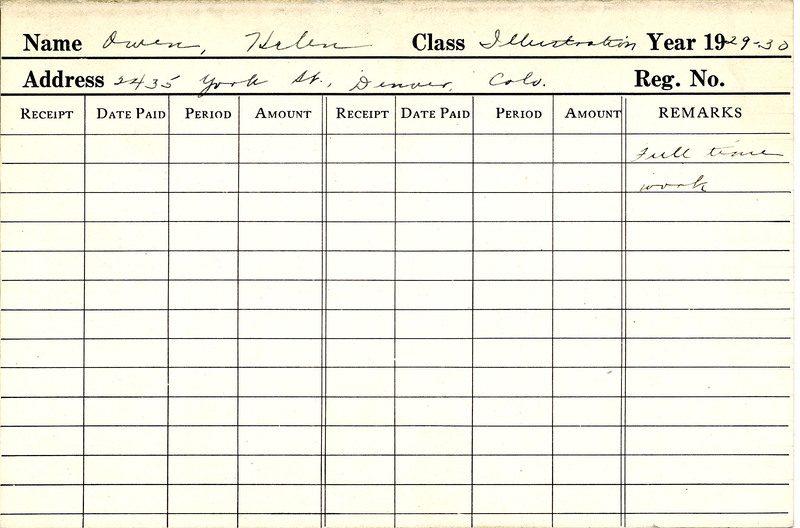 Name Owen, Helen Class Illustration Year 1929-30
Address 2435 York St., Denver, Colo. Reg. No.
RECEIPT DATE PAID PERIOD AMOUNT RECEIPT DATE PAID PERIOD AMOUNT REMARKS
Full time
work